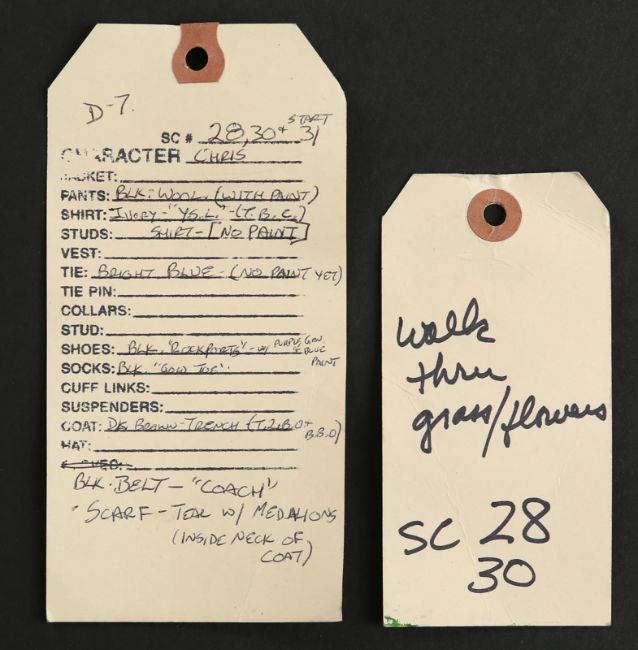 D-7.
START
SC # 28,30+ 31
CHARACTER CHRIS
JACKET:
PANTS: BLK. WOOL. (WITH PAINT)
SHIRT: IVORY-"YS.L."-(T.B.C.)
STUDS: SHIRT-[NO PAINT]
VEST:
TIE: BRIGHT BLUE-(NO PAINT YET)
TIE PIN:
COLLARS:
STUD:
SHOES: BLK. "ROCKPORTS"-w/ PURPLE, GRN. & BLUE PAINT
SOCKS: BLK. "GOLD TOE".
CUFF LINKS:
SUSPENDERS:
COAT: DK BROWN-TRENCH (T.2.B.O+ B.B.O)
HAT:
BLK. BELT-"COACH"
SCARF-TEAL W/ MEDALIONS
(INSIDE NECK OF
COAT)
walk
thru
grass/flowers
SC 28
30